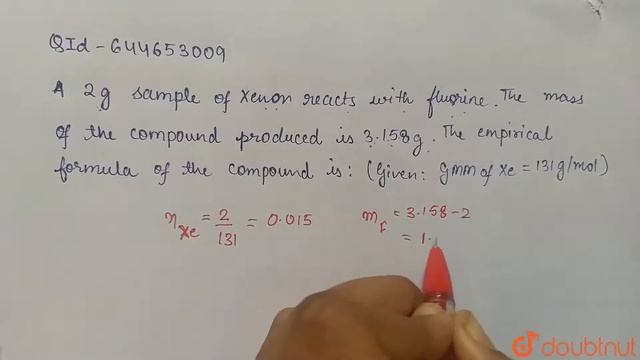 QId - 644653009
A 2g sample of Xenon reacts with fluorine. The mass
of the compound produced is 3.158g. The empirical
formula of the compound is: (Given: gmm of Xe = 131g/mol)
nXe = 2/131 = 0.015
mF = 3.158-2
= 1.
doubtnut